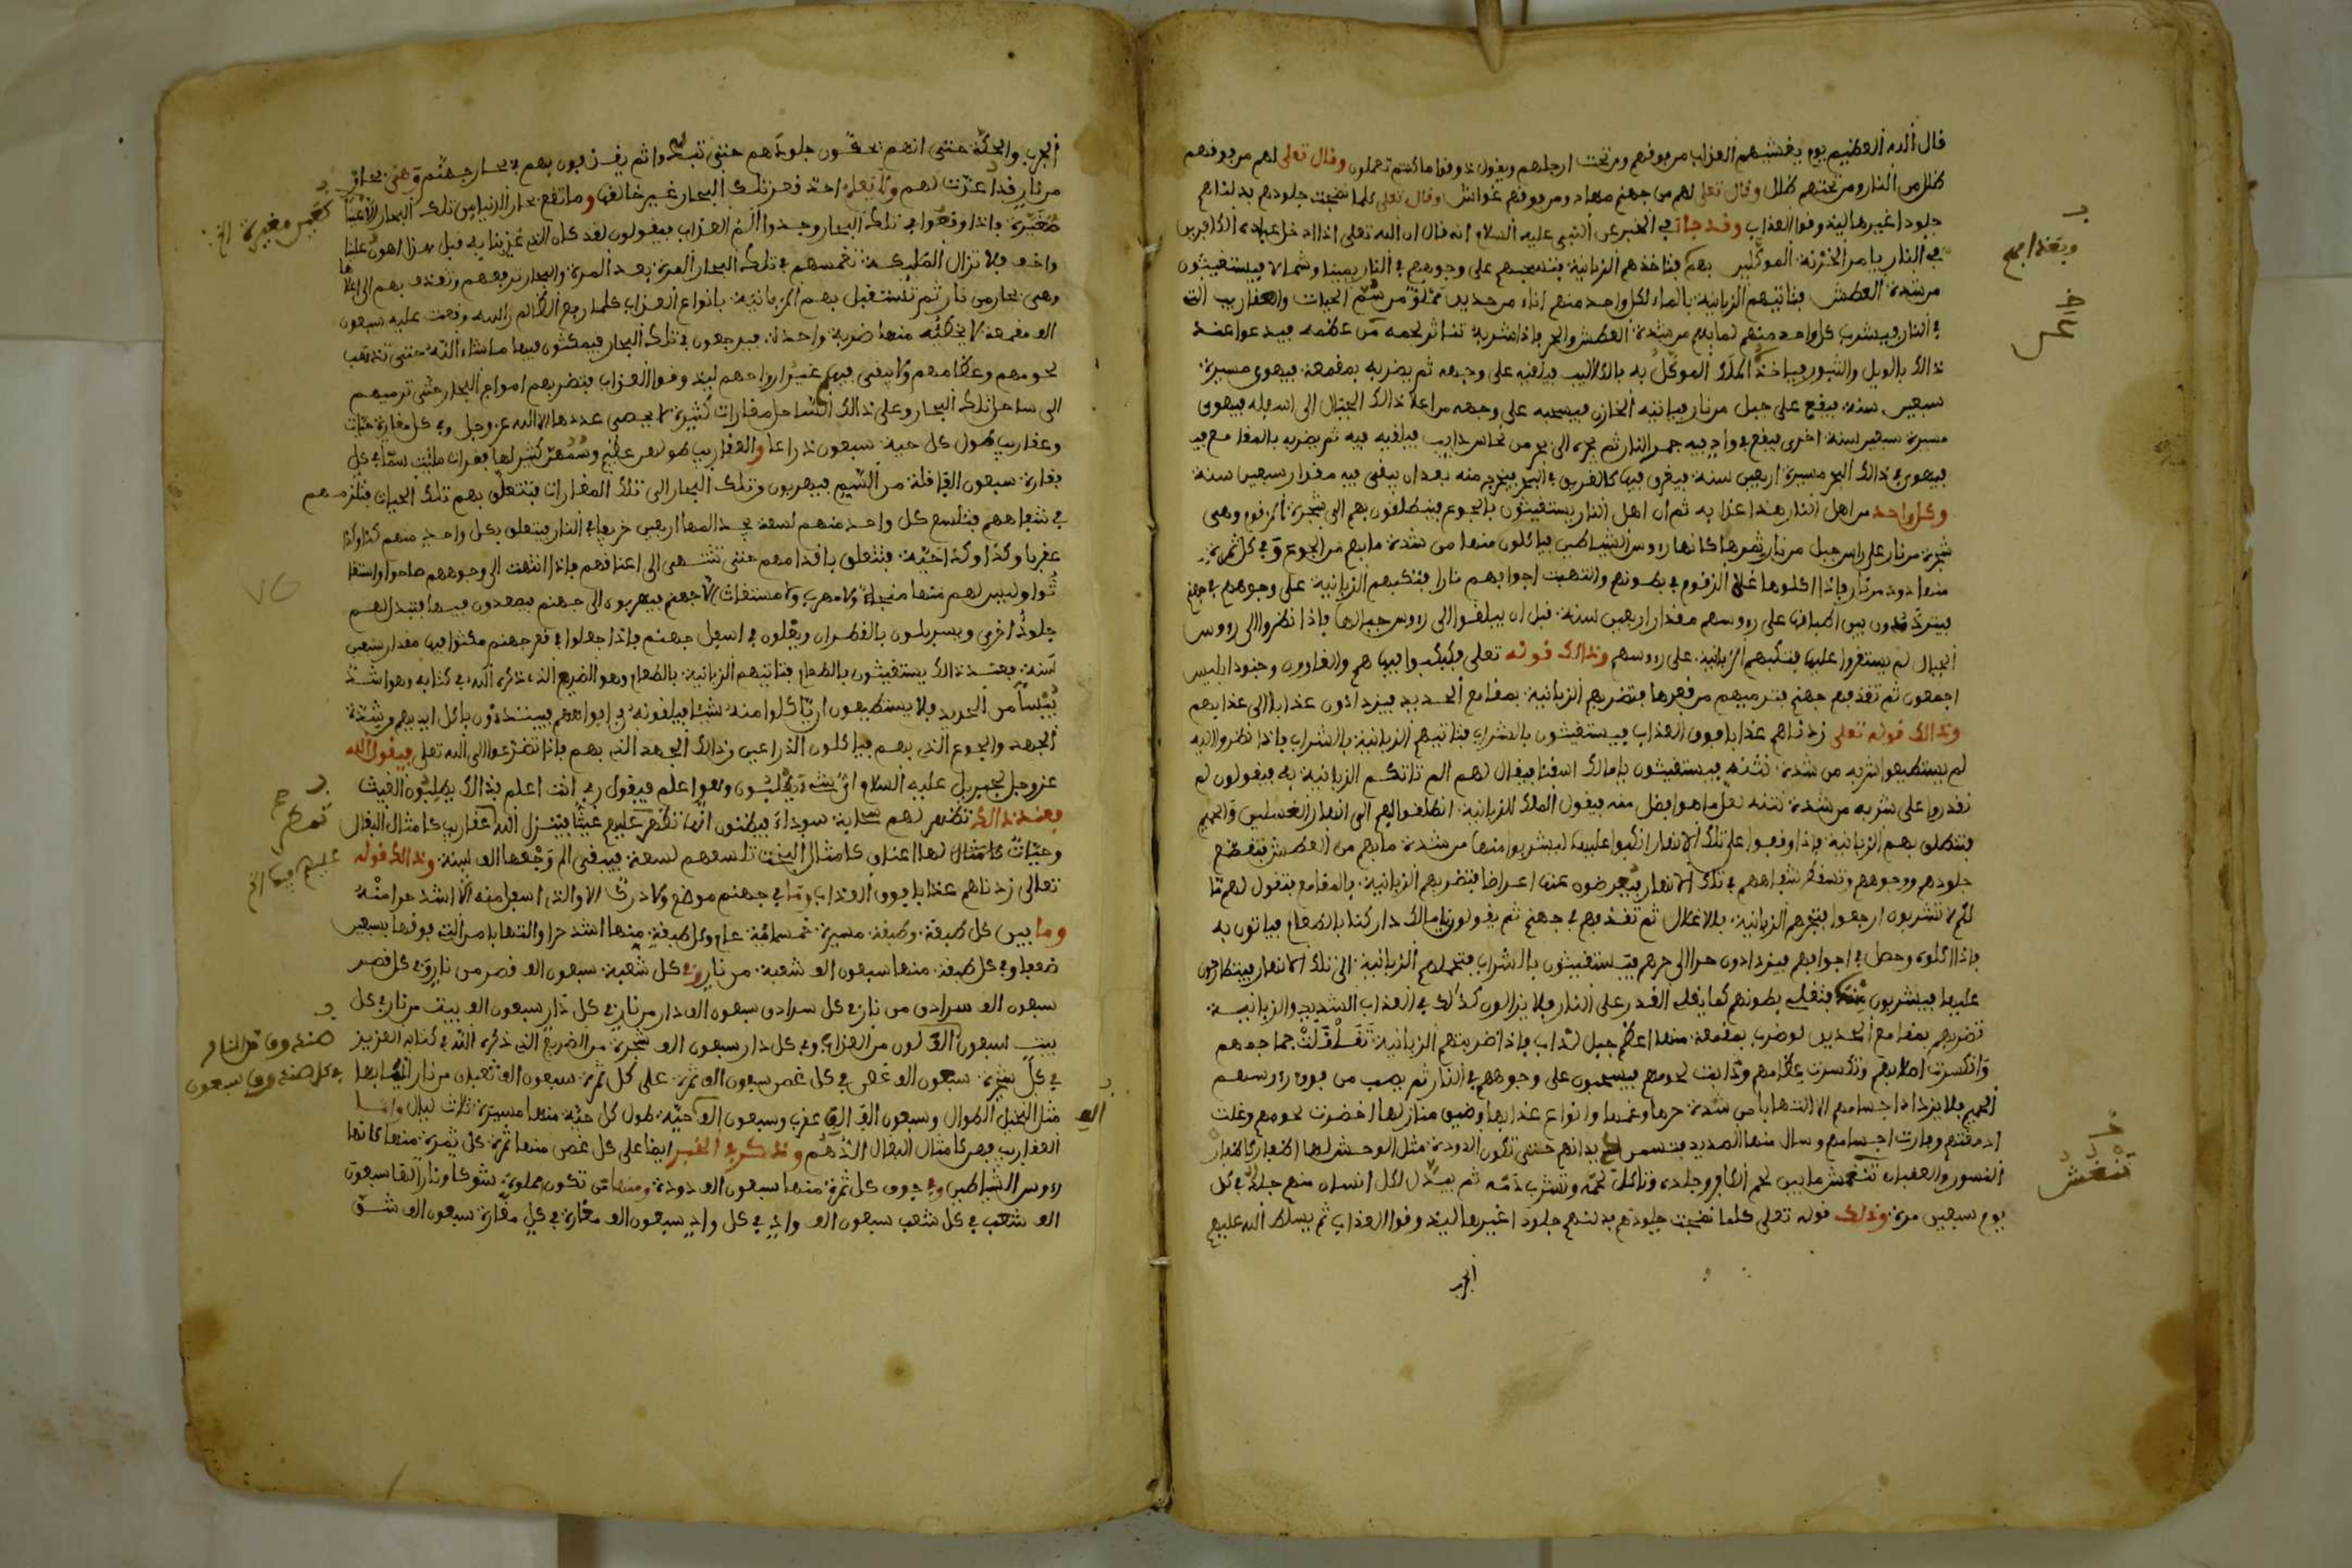 قال الله العظيم يوم يغشيهم العذاب من فوقهم ومن تحت ارجلهم ويقول ذوقوا ما كنتم تعملون وقال تعلى لهم من فوقهم
ظلل من النار ومن تحتهم ظلل وقال تعلى لهم من جهنم مهاد ومن فوقهم غواش وقال تعلى كلما نضجت جلودهم بدلناهم
جلودا غيرها ليذوقوا العذاب وقد جاء في الخبر عن النبي عليه السلام انه قال ان الله تعلى اذا ادخل عباده الكافرين
في النار يامر الخزنة الموكلين بهم فتاخذهم الزبانية فتسحبهم على وجوههم في النار يمينا وشمالا فيستغيثون
من شدة العطش فتاتيهم الزبانية بالماء لكل واحد منهم اناء من حديد مملو من سم الحيات والعقارب التي
في النار فيشرب كل واحد منهم لما بهم من شدة العطش والحر فاذا شربه تناثر لحمه من عظمه فيدعوا عند
ذالك بالويل والثبور فياخذ الملك الموكل به بالكلاليب فيلقيه على وجهه ثم يضربه بمقمعة فيهوى مسيرة
سبعين سنة فيقع على جبل من نار فياتيه الخازن فيسحبه على وجهه من اعلا ذالك الجبل الى اسفله فيهوى
مسيرة سبعين سنة اخرى فيقع في واد فيه جمر النار ثم يجره الى بحر من نحاس ذايب فيلقيه فيه ثم يضربه بالمقامع
فيهوى في ذالك البحر مسيرة اربعين سنة فيغرق فيها كالغريق في البحر فيخرج منه بعد ان يبقى فيه مقدار سبعين سنة
وكل واحد من اهل النار هذا عذابه ثم ان اهل النار يستغيثون بالجوع فينطلقون بهم الى شجرة الزقوم وهى
شجرة من نار على راس جبل من نار ثمرها كانها رءوس الشياطين فياكلون منها من شدة ما بهم من الجوع وفي كل ثمرة
منها دود من نار فاذا اكلوها غلا الزقوم في بطونهم والتهبت اجوافهم نارا فتكبهم الزبانية على وجوههم في جهنم
فيترددون بين اطباقها على رءوسهم مقدار اربعين سنة قبل ان يبلغوا الى رءوس جبالها فاذا نظروا الى رءوس
الجبال لم يستقروا عليها فتكبهم الزبانية على رءوسهم وذالك قوله تعلى فكبكبوا فيها هم والغاوون وجنود ابليس
اجمعون ثم تقذفهم جهنم فترميهم من قعرها فتضربهم الزبانية بمقامع الحديد فيزدادون عذابا الى عذابهم
وذالك قوله تعلى زدناهم عذابا فوق العذاب فيستغيثون بالشراب فتاتيهم الزبانية بالشراب فاذا نظروا اليه
لم يستطيعوا شربه من شدة نتنه فيستغيثون يا مالك اسقنا فيقال لهم الم تاتكم الزبانية به فيقولون لم
نقدروا على شربه من شدة نتنه هل ما هو افضل منه فيقول الملك للزبانية انطلقوا بهم الى انهار الغسلين والحميم
فتنطلق بهم الزبانية فاذا وقفوا على تلك الانهار انكبوا عليها ليشربوا منها من شدة ما بهم من العطش فتقطع
جلودهم ووجوههم وتسقط شفاههم في تلك الانهار فيعرضون عنها اعراضا فتضربهم الزبانية بالمقامع فتقول لهم ما
لكم لا تشربون ارجعوا فتجرهم الزبانية بالاغلال ثم تقذفهم في جهنم ثم يقولون يا مالك داركنا بالطعام فياتون به
فاذا اكلوه وحصل في اجوافهم فيزدادون حرا الى حرهم فيستغيثون بالشراب فتحملهم الزبانية الى تلك الانهار فيتطارحون
عليها فيشربون منها فتغلي بطونهم كما يغلي القدر على النار فلا يزالون كذلك في العذاب الشديد والزبانية
تضربهم بمقامع الحديد لو ضرب بمقمعة منها اعظم جبل لذاب فاذا ضربتهم الزبانية تقلقلت جماجمهم
وانكسرت اضلاعهم وتكسرت عظامهم وذابت لحومهم فيسحبون على وجوههم في النار ثم يصب من فوق رءوسهم
الحميم فلا يزداد اجسامهم الا التهابا من شدة حرها وغمها وانواع عذابها وضيق منازلها اخضرت لحومهم وغلت
ادمغتهم وفارت اجسامهم وسال منها الصديد حتى تكون الدودة مثل الوحش لها اظفار كاظفار
النسور والعقبان تنهش ما بين لحم الكافر وجلده وتاكل لحمه وتشرب دمه ثم يبدل لكل انسان منهم جلد في كل
يوم سبعين مرة وذلك قوله تعلى كلما نضجت جلودهم بدلناهم جلودا غيرها ليذوقوا العذاب ثم يسلط الله عليهم
الجرب
الجرب والحكة حتى انهم يحكون جلودهم حتى ثم يقذفون بهم في بحار جهنم وهي بحار
من نار قد اعدت لهم ولا يعلم احد قعر تلك البحار غير خالقها وما تقع بحار الدنيا من تلك البحار الا عينا
صغيرة فاذا وقعوا في تلك البحار وجدوا اليم العذاب فيقولون لقد كان الذي عذبنا به قبل هذا اهون علينا
واخف فلا تزال الملئكة تغمسهم في تلك البحار المرة بعد المرة والبحار ترفعهم وتقذف بهم الى اعلاها
وهي بحار من نار ثم تستقبل بهم الزبانية بانواع العذاب كلما رفع الظالم راسه وقعت عليه سبعون
الف مقمعة لا يخطئه منها ضربة واحدة فيرجعون في تلك البحار فيمكثون فيها ما شاء الله حتى تذهب
لحومهم وعظامهم ولا يبقى فيها غير ارواحهم ليذوقوا العذاب فتضربهم امواج البحار حتى ترميهم
الى ساحل تلك البحار وعلى ذالك الساحل مغارات كثيرة لا يحصى عددها الا الله عز وجل وفي كل مغارة حيات
وعقارب طول كل حية سبعون ذراعا والعقارب طولهن عظيم
في شفاههم فتلسع كل واحد منهم لسعة يجد المها اربعين خريفا في النار فيتعلق بكل واحد منهم كذا وكذا
عقربا وكذا وكذا حية فتتعلق باقدامهم حتى تنتهى الى اعناقهم فاذا انتهت الى وجوههم صاحوا واستغا
ثوا وليس لهم منها منجا ولا مهرب ولا مستغاث الا جهنم فيهربون الى جهنم فيصعدون فيها فتبدل لهم
جلود اخرى ويسربلون بالقطران ويغلون في اسفل جهنم فاذا جعلوا في قعر جهنم مكثوا فيها مقدار سبعين
سنة فعند ذالك يستغيثون بالطعام فتاتيهم الزبانية بالطعام وهو الضريع الذي ذكره الله في كتابه وهو اشد
يبسا من الحديد فلا يستطيعون ان ياكلوا منه شيئا فيلقونه في افواههم
الجهد والجوع الذي بهم فياكلون الذراعين وذالك الجهد الذي بهم فاذا تضرعوا الى الله تعلى فيقول الله
عز وجل لجبريل عليه السلام اي شيء يطلبون وهو اعلم فيقول ربي انت اعلم بذالك يطلبون الغيث
فعند ذالك تظهر لهم سحابة سوداء فيظنون انها تمطر عليهم غيثا فينزل الله عقارب كامثال البغال
وحيات كامثال لها اعناق كامثال البخت تلسعهم لسعة فيبقى الم وجعها الف سنة وذالك قوله
تعالى زدناهم عذابا فوق العذاب وما في جهنم موضع ولا درك الا والذي اسفل منه الا اشد حرا منه
وما بين كل طبقة وطبقة مسيرة خمسمائة عام وكل طبقة منها اشد حرا والتهابا من التي فوقها بسبعين
ضعفا وفي كل طبقة منها سبعون الف شعبة من نار وفي كل شعبة سبعون الف قصر من نار وفي كل قصر
سبعون الف سرادق من نار في كل سرادق سبعون الف دار من نار في كل دار سبعون الف بيت من نار في كل
بيت سبعون الف لون من العذاب وفي كل دار سبعون الف شجرة من الضريع الذي ذكره الله في كتابه العزيز
في كل شجرة سبعون الف غصن في كل غصن سبعون الف ثمرة على كل ثمرة سبعون الف ثعبان من نار
مثل النخيل الطوال وسبعون الف الف عقرب وسبعون الف حية طول كل حية منها مسيرة ثلاث ليال واما
العقارب فهي كامثال البغال الدهم وذكر في الخبر ايضا على كل غصن منها ثمرة كل ثمرة منها كانها
رءوس الشياطين وفي جوف كل ثمرة منها سبعون الف دودة ومنها من تكون مملوة شوكا ونارا لها سبعون
الف شعب في كل شعب سبعون الف واد في كل واد سبعون الف مغارة في كل مغارة سبعون الف شق
صندوق من النار
في كل صندوق سبعون
الف